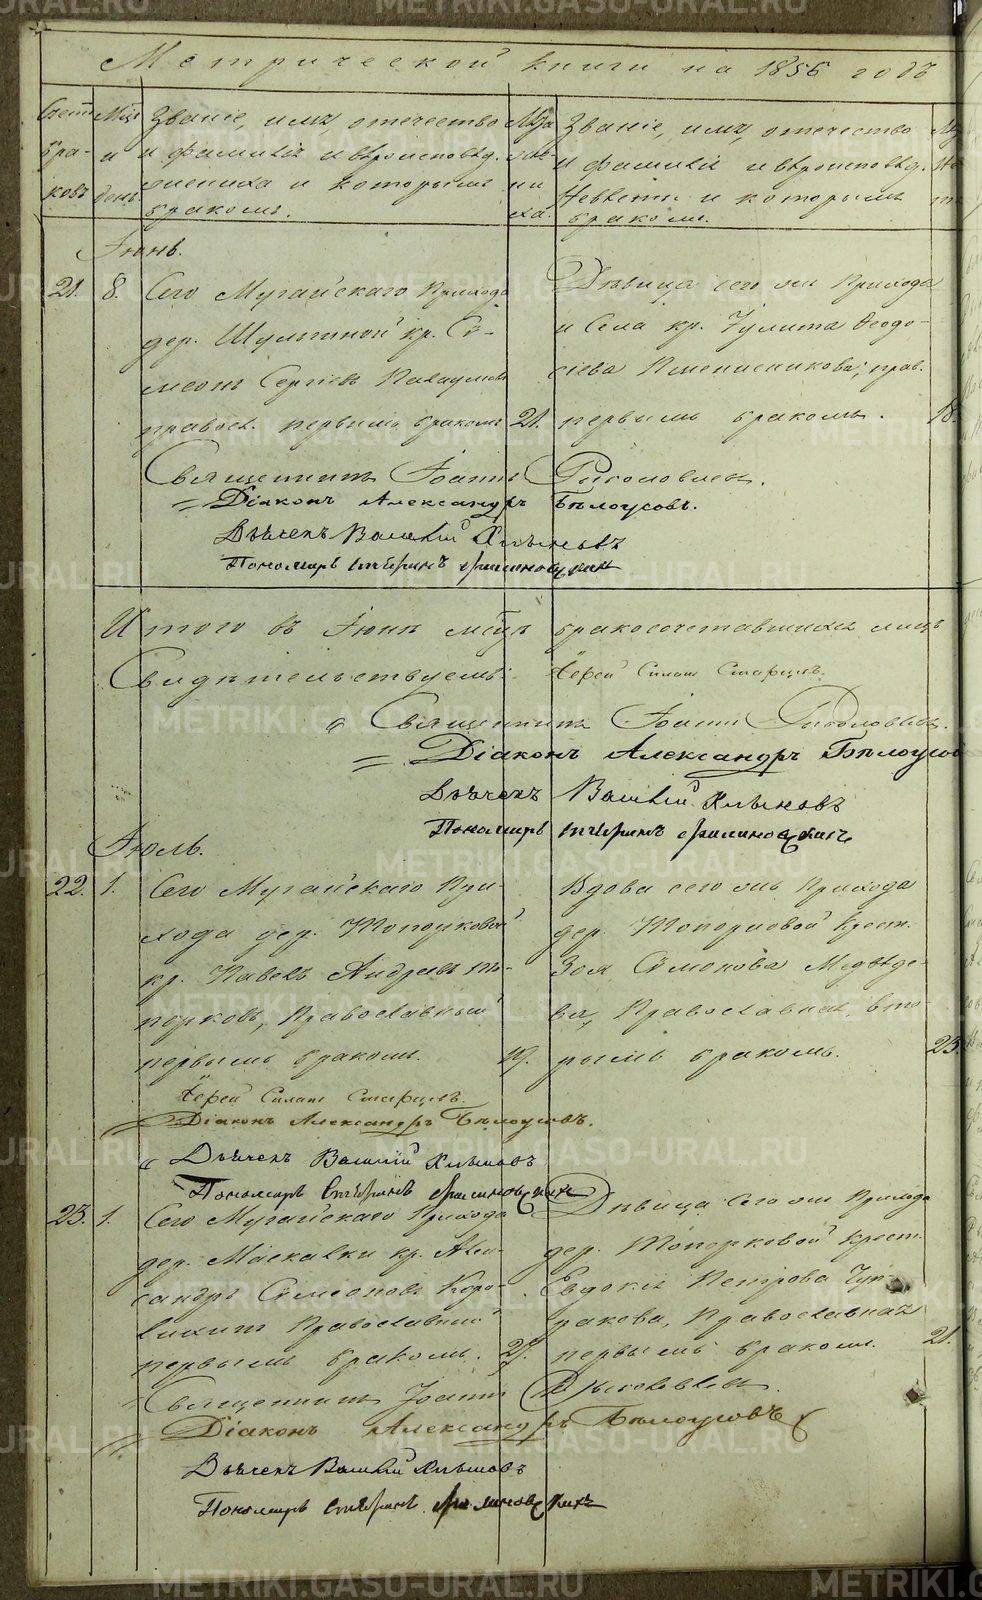 Метрической книги на 1856 годъ
Счетъ бра- ковъ
Мцъ и день.
Званіе, имя, отчество
и фамилія и вѣроисповѣд.
жениха и которымъ
бракомъ.
Лѣта же- ни ха.
Званіе, имя, отчество
и фамилія и вѣроисповѣд.
Невѣсты и которымъ
бракомъ.
Іюнь.
21. 8. Сего Мугайскаго Прихода
дер. Шуминой кр. Си-
меонъ Сергіевъ
правосл. первымъ бракомъ 21.
Дѣвица сего же Прихода
и Села кр. Іулита Ѳеодо-
сіева прав.
первымъ бракомъ. 18.
Священникъ Іоаннъ
Діаконъ Александръ Бѣлоусовъ.
Дьячекъ Василій Хлыновъ
Пономарь
Итого въ Іюнѣ мцѣ бракосочетавшихся лицъ
Свидѣтельствуемъ: Іерей Силинъ Старцевъ.
Священникъ Іоаннъ
Діаконъ Александръ Бѣлоусов
Дьячекъ Василій Хлыновъ
Пономарь
Іюль.
22. 1. Сего Мугайскаго При-
хода дер. Топорковой
кр. Павелъ Андреевъ То-
порковъ, Православный
первымъ бракомъ. 19.
Вдова сего же Прихода
дер. Топорковой Крест.
Зоя Симонова Медвѣде-
ва, Православная, вто-
рымъ бракомъ. 23.
Іерей Силинъ Старцевъ.
Діаконъ Александръ Бѣлоусовъ.
Дьячекъ Василій Хлыновъ
Пономарь
23. 1. Сего Мугайскаго Прихода
дер. Маскалки кр. Алек-
сандръ Симеоновъ Коро-
Православный
первымъ бракомъ. 27.
Дѣвица Сего же Прихода
дер. Топорковой Крест.
Евдокія Петрова Чуп-
ракова, Православная
первымъ бракомъ. 21.
Священникъ Іоаннъ
Діаконъ Александръ Бѣлоусовъ
Дьячекъ Василій Хлыновъ
Пономарь
METRIKI.GASO-URAL.RU